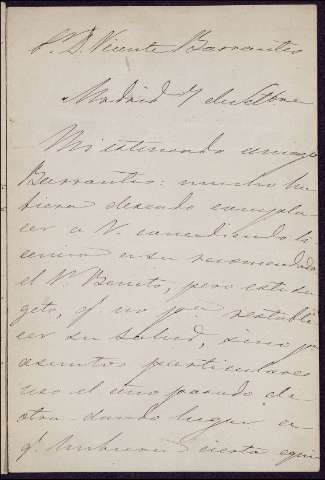 S. D. Vicente Barrantes
Madrid 7 de
Mi estimado amigo
Barrantes: mucho hu
biera deseado compla
cer a V. concediendo li
cencia a su recomendado
el Sr. Benito, pero este su
geto, q. no pa. restable
cer su salud, sino pa.
asuntos particulares
uso el año pasado de
otra dando lugar a
q. hubiera cierta